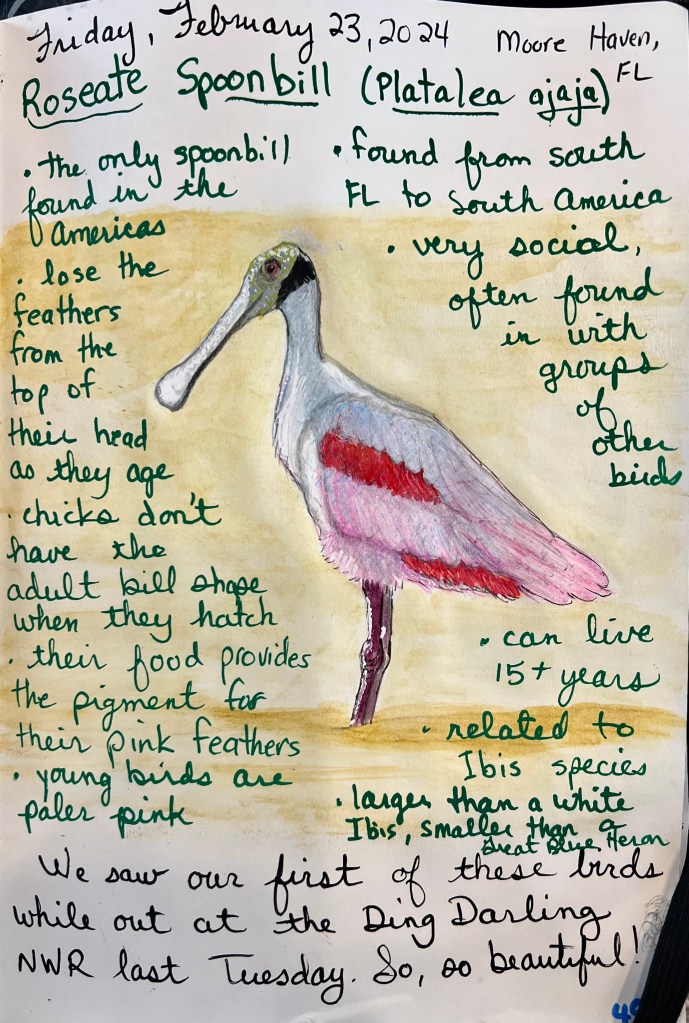 Friday, February 23, 2024
Moore Haven,
FL
Roseate Spoonbill (Platalea ajaja)
• the only spoonbill
found in the
Americas
• lose the
feathers
from the
top of
their head
as they age
• chicks don't
have the
adult bill shape
when they hatch
• their food provides
the pigment for
their pink feathers
• young birds are
paler pink
• found from south
FL to South America
• very social,
often found
in with
groups
of
other
birds
• can live
15+ years
• related to
Ibis species
• larger than a white
Ibis, smaller than a
Great Blue Heron
We saw our first of these birds
while out at the Ding Darling
NWR last Tuesday. So, so beautiful!